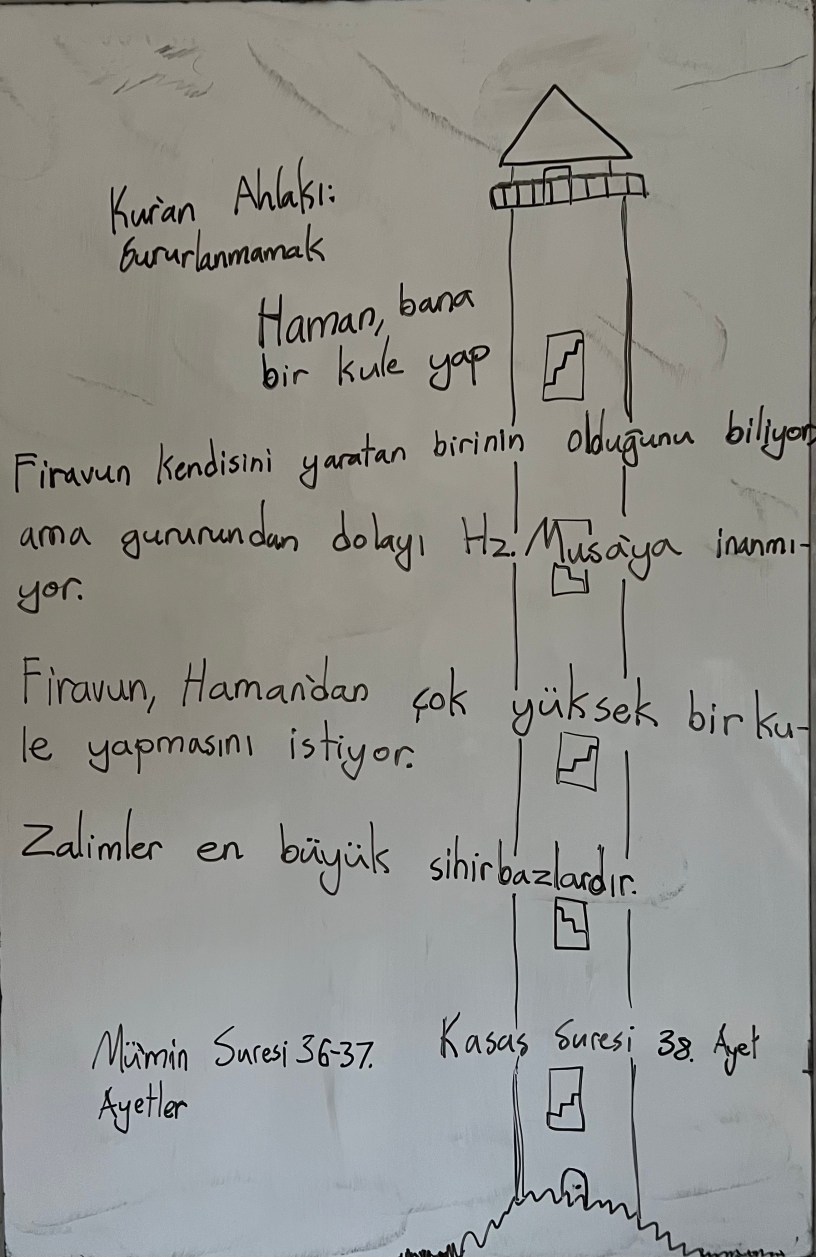 Kur'an Ahlakı:
Gururlanmamak
Haman, bana
bir kule yap
Firavun kendisini yaratan birinin olduğunu biliyor
ama gururundan dolayı Hz. Musa'ya inanmı-
yor.
Firavun, Haman'dan çok yüksek bir ku-
le yapmasını istiyor.
Zalimler en büyük sihirbazlardır.
Mü'min Suresi 36-37. Kasas Suresi 38. Ayet
Ayetler